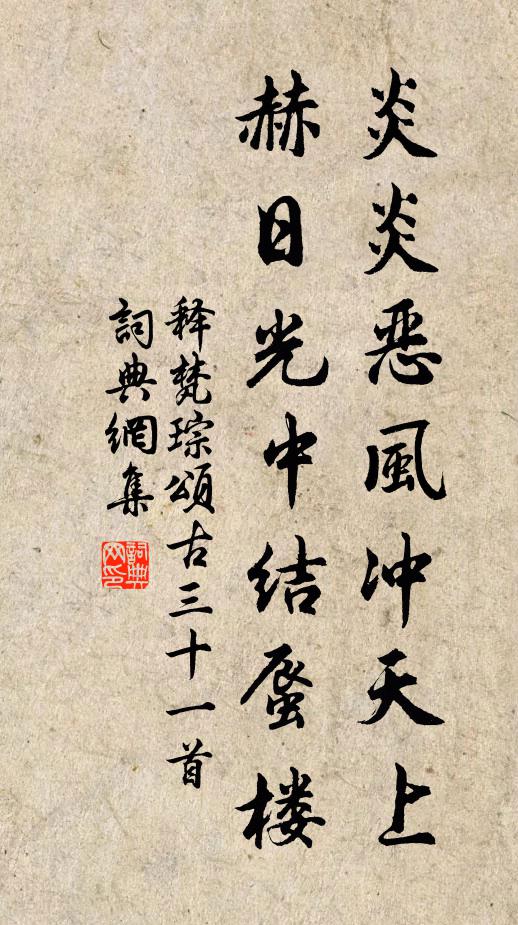 炎炎恶風冲天上
赫日光中结蜃楼
释梵琮頌古三十一首
詞典網集
詞典网印